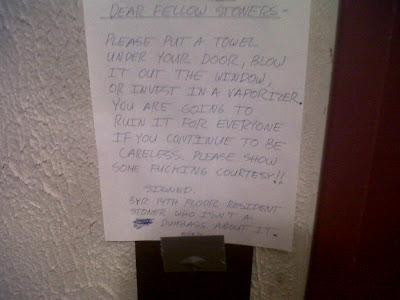 DEAR FELLOW STONERS -
PLEASE PUT A TOWEL
UNDER YOUR DOOR, BLOW
IT OUT THE WINDOW,
OR INVEST IN A VAPORIZER.
YOU ARE GOING TO
RUIN IT FOR EVERYONE
IF YOU CONTINUE TO BE
CARELESS. PLEASE SHOW
SOME FUCKING COURTESY!!
SIGNED,
3YR 14TH FLOOR RESIDENT
STONER WHO ISN'T A
DUMBASS ABOUT IT.